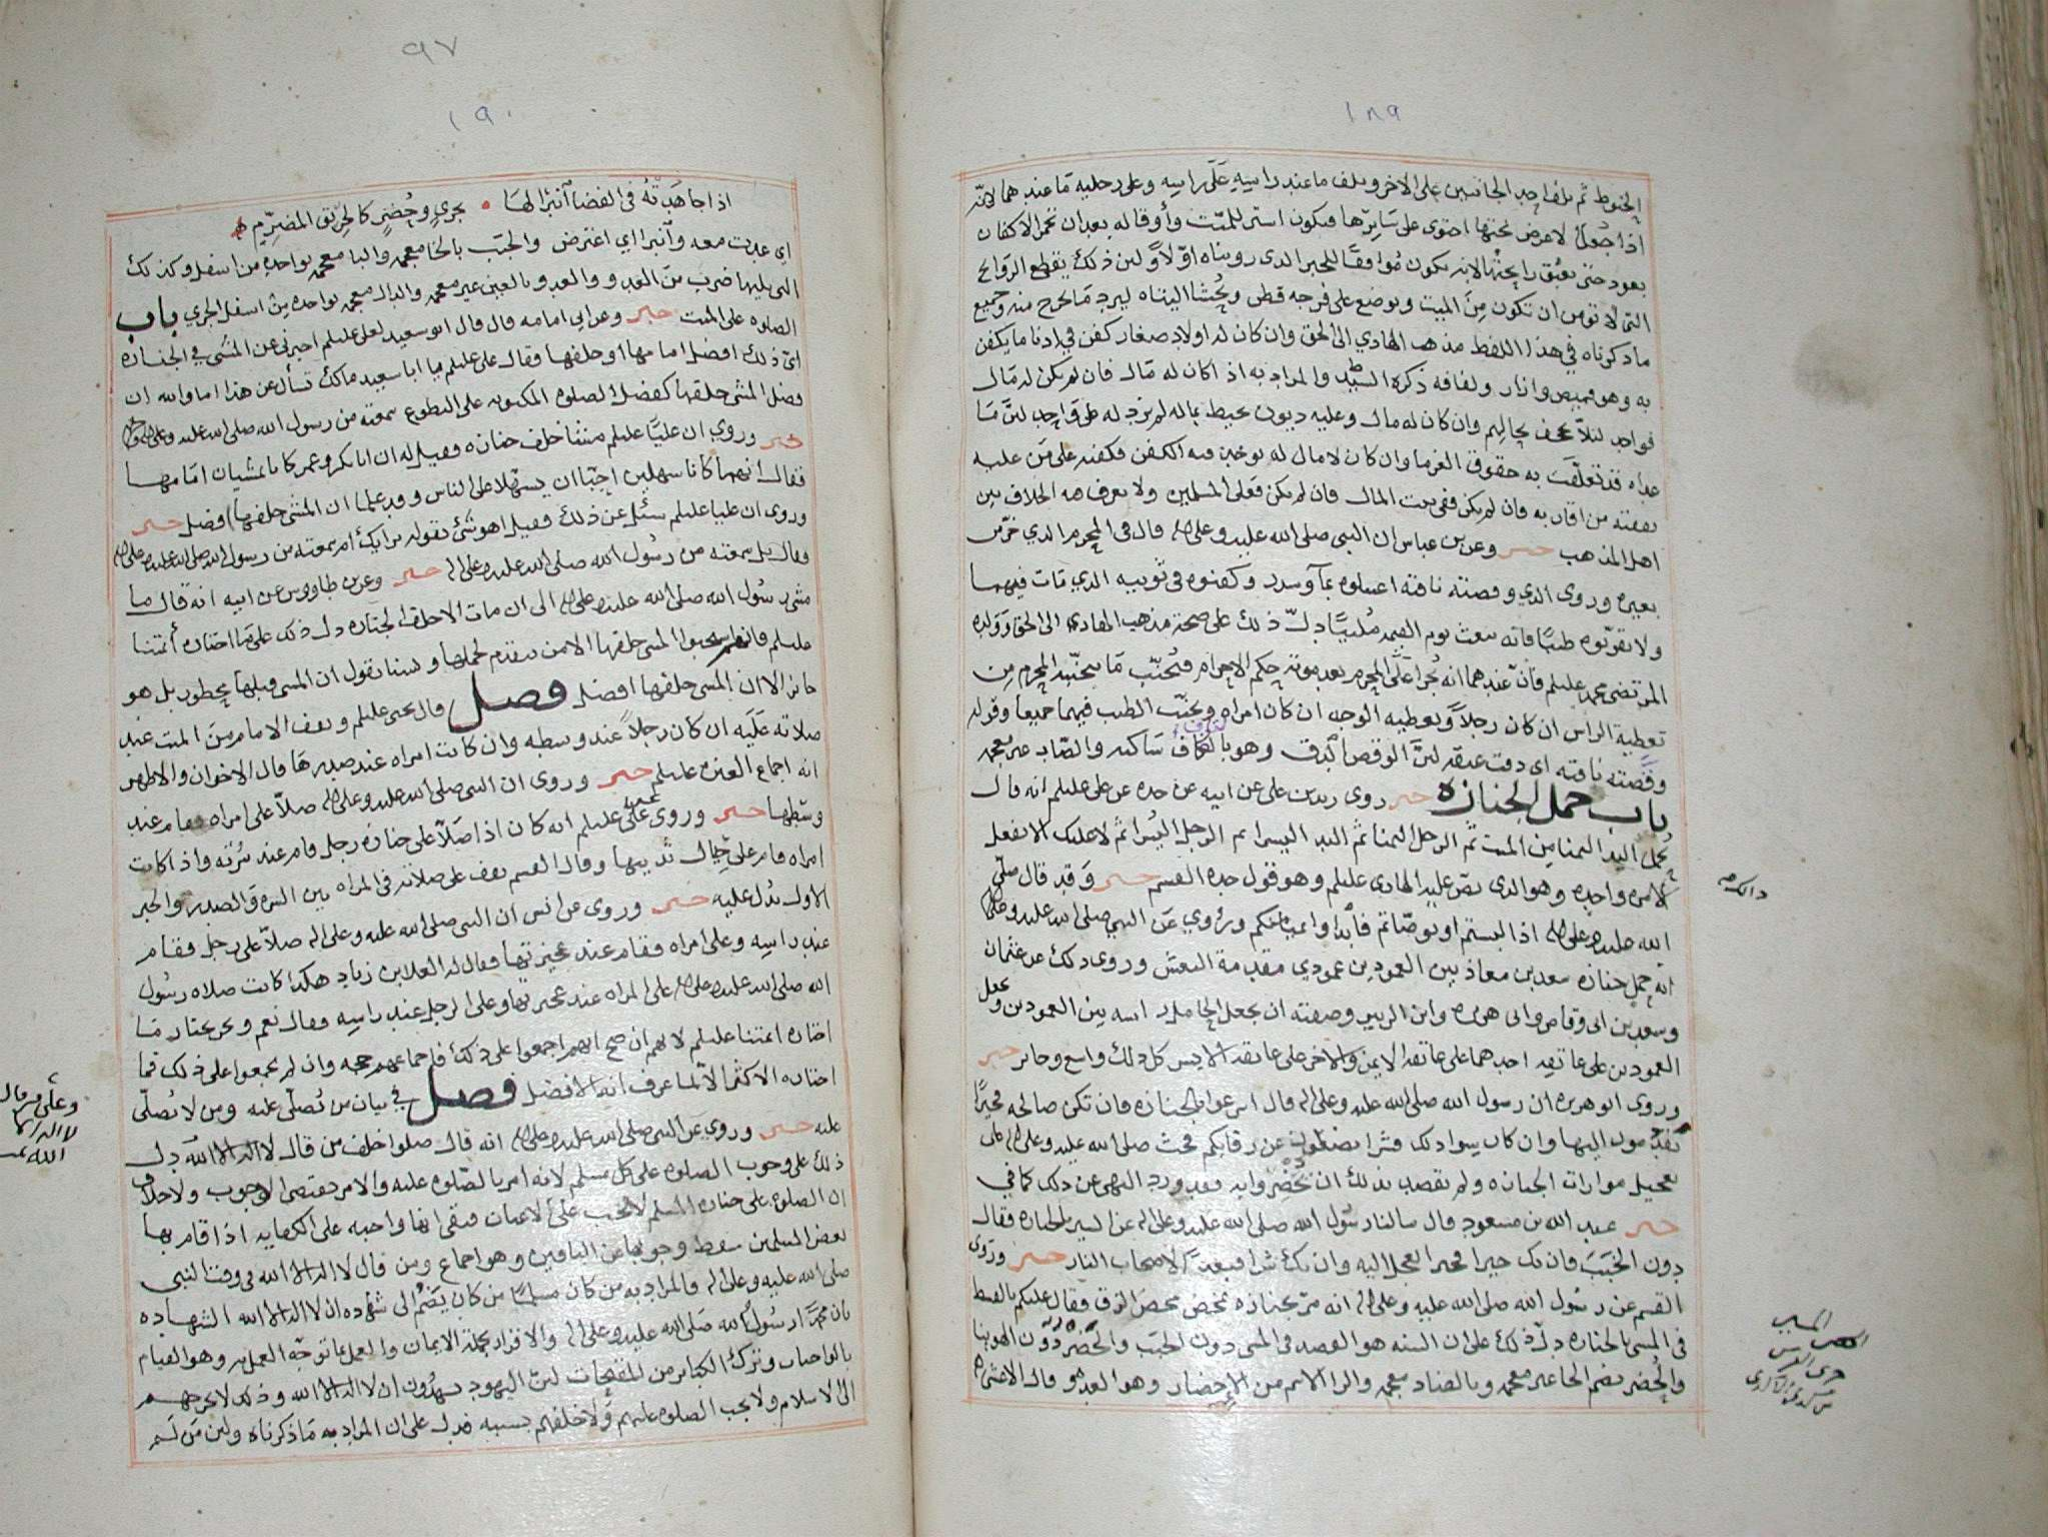 ١٨٩
الحنوط ثم يلف احد الجانبين على الاخر ويلف ما عند راسه على راسه وعلى رجليه ما عندهما لانه
اذا جعل لا عرض تحتها احتوى على سايرها فيكون استر للميت وأوقا له بعد ان تجمر الاكفان
بعود حتى تعبق رايحتها لانه يكون موافقا للخبر الذي رويناه اولا ولين ذلك يقطع الروايح
التي لا تومن ان تكون من الميت ويوضع على فرجه قطن ويحشا اليتاه ليرد ما يخرج منه وجميع
ما ذكرناه في هذا اللفظ مذهب الهادي الى الحق وان كان له اولاد صغار كفن في ادنا ما يكفن
به وهو قميص وازار ولفافه ذكره السيد ط والمراد به اذا كان له مال فان لم يكن له مال
فواحد لئلا يجحف بحالهم وان كان له مال وعليه ديون تحيط بماله لم يزد له على واحد لئن ما
عداه قد تعلقت به حقوق الغرما وان كان لا مال له يوخذ منه الكفن فكفنه على من عليه
نفقته من اقاربه فان لم يكن ففي بيت المال فان لم يكن فعلى المسلمين ولا نعرف فيه الخلاف بين
اهل المذهب خبر وعن بن عباس ان النبي صلى الله عليه وعلى اله قال في المحرم الذي خر من
بعيره وروى الذي وقصته ناقته اغسلوه بماء وسدر وكفنوه في ثوبيه الذي مات فيهما
ولا تقربوه طيبا فانه يبعث يوم القيمه ملبيا دل ذلك على صحة مذهب الهادي الى الحق وولده
المرتضى محمد عليلم فان عندهما انه يجرا على المحرم بعد موته حكم الاحرام فيجنب ما يجتنبه المحرم من
تغطية الراس ان كان رجلا وتغطيه الوجه ان كان امراه ويجنب الطيب فيهما جميعا وقوله
وقصته ناقته اي دقت عنقه لئن الوقص الدق وهو بالقاف ساكنه والصاد غير معجمه
باب حمل الجنازه خبر روى زيد بن علي عن ابيه عن جده عن علي عليلم انه قال
تحمل اليد اليمنا من الميت ثم الرجل اليمنا ثم اليد اليسرا ثم الرجل اليسرا ثم لا عليك الا تفعل
الا مره واحده وهو الذي نص عليه الهادي عليلم وهو قول جده القسم خبر وقد قال صلى
الله عليه وعلى اله اذا لبستم او توضاتم فابدوا بميامنكم وروي عن النبي صلى الله عليه وعلى اله
انه حمل جنازه سعد بن معاذ بين العمودين عمودي مقدمة النعش وروى ذلك عن عثمان
وسعد بن ابي وقاص وابي هريره وابن الزبير وصفته ان يجعل الحامل راسه بين العمودين ويجعل
العمودين على عاتقه احدهما على عاتقه الايمن والاخر على عاتقه الايسر كل ذلك واسع وجايز خبر
وروى ابو هريره ان رسول الله صلى الله عليه وعلى اله قال اسرعوا بالجنازه فان تكن صالحه فخيرا
تقدمون اليها وان كان سوا ذلك فشرا تضعونه عن رقابكم فحث صلى الله عليه وعلى اله على
تعجيل موارات الجنازه ولم يقصد بذلك ان تحضروا به فقد ورد النهي عن ذلك كما في
خبر عبد الله بن مسعود قال سالنا رسول الله صلى الله عليه وعلى اله عن السير بالجنازه فقال
دون الخبب فان تك خيرا فخير العجل اليه وان تك شرا فبعدا لاصحاب النار خبر وروى
القسم عن رسول الله صلى الله عليه وعلى اله انه مر بجنازه تمخض مخض الزق فقال عليكم بالقسط
في المشي بالجنازه دل ذلك على ان السنه هو القصد في المشي دون الخبب والحضر دون الهوينا
والحضر بضم الحا غير معجمه وبالضاد معجمه والرا الاسم من الاحضار وهو العدو قال الاعشى
٩٧
١٩٠
اذا جاهدته في الفضا آنبرا لها • بجري وحضر كالحريق المضرم
اي عدت معه وآنبرا اي اعترض والخبب بالخا معجمه والبا معجمه بواحده من اسفل وكذلك
التي يليها ضرب من العدو والعدو بالعين غير معجمه والدال معجمه بواحده من اسفل الجري باب
الصلوه على الميت خبر وعن ابي امامه قال قال ابو سعيد لعلي عليلم اخبرني عن المشي في الجنازه
اي ذلك افضل امامها او خلفها فقال علي عليلم يا ابا سعيد مثلك تسأل عن هذا اما والله ان
فضل المشي خلفها كفضل الصلوه المكتوبه على التطوع سمعته من رسول الله صلى الله عليه وعلى اله
خبر وروي ان عليا عليلم مشا خلف جنازه فقيل له ان ابا بكر وعمر كانا يمشيان امامها
فقال انهما كانا سهلين احبا ان يسهلا على الناس وقد علما ان المشي خلفها افضل خبر
وروى ان عليا عليلم سئل عن ذلك فقيل اهو شي تقوله برايك ام سمعته من رسول الله صلى الله عليه وعلى اله
فقال بل سمعته من رسول الله صلى الله عليه وعلى اله خبر وعن بن طاووس عن ابيه انه قال ما
مشى رسول الله صلى الله عليه وعلى اله الى ان مات الا خلف الجنازه دل ذلك على ما اختاره أئمتنا
عليلم فانهم استحبوا المشي خلفها الا من يتقدم لحملها ولسنا نقول ان المشي قبلها محظور بل هو
جايز الا ان المشي خلفها افضل فصل قال يحيى عليلم ويقف الامام من الميت عند
صلاته عليه ان كان رجلا عند وسطه وان كانت امراه عند صدرها قال الاخوان والاظهر
انه اجماع العتره عليلم خبر وروى ان النبي صلى الله عليه وعلى اله صلا على امراه فقام عند
وسطها خبر وروى عن علي عليلم انه كان اذا صلا على جنازه رجل قام عند سرته واذا كانت
امراه قام على حيال ثدييها وقال القسم يقف على صلاته في المراه بين السره والصدر والخبر
الاول يدل عليه خبر وروى عن انس ان النبي صلى الله عليه وعلى اله صلا على رجل فقام
عند راسه وعلى امراه فقام عند عجيزتها فقال له العلا بن زياد هكذا كانت صلاه رسول
الله صلى الله عليه وعلى اله على المراه عند عجيزتها وعلى الرجل عند راسه فقال نعم ونحن نختار ما
اختاره ائمتنا عليلم لانهم ان صح انهم اجمعوا على ذلك فاجماعهم حجه وان لم يجمعوا على ذلك فما
اختاره الاكثر الا لما عرف انه الافضل فصل في بيان من يصلى عليه ومن لا يصلى
عليه خبر وروي عن النبي صلى الله عليه وعلى اله انه قال صلوا خلف من قال لا اله الا الله دل
ذلك على وجوب الصلوه على كل مسلم لانه امر بالصلوه عليه والامر يقتضي الوجوب ولا خلاف
ان الصلوه على جنازه المسلم لا تجب على الاعيان فبقى انها واجبه على الكفايه اذا قام بها
بعض المسلمين سقط وجوبها عن الباقين وهو اجماع ومن قال لا اله الا الله في وقت النبي
صلى الله عليه وعلى اله فالمراد به من كان مسلما من كان يضم الى شهاده ان لا اله الا الله الشهاده
بان محمدا رسول الله صلى الله عليه وعلى اله والاقرار بجملة الايمان والعمل بما توجه العمل به وهو القيام
بالواجبات وترك الكباير من المقبحات لئن اليهود يشهدون ان لا اله الا الله وذلك لا يخرجهم
الى الاسلام ولا يجب الصلوه عليهم ولا خلفهم بسببه فدل على ان المراد به ما ذكرناه ولئن من لم
وعلى من قال
لا اله الا
الله